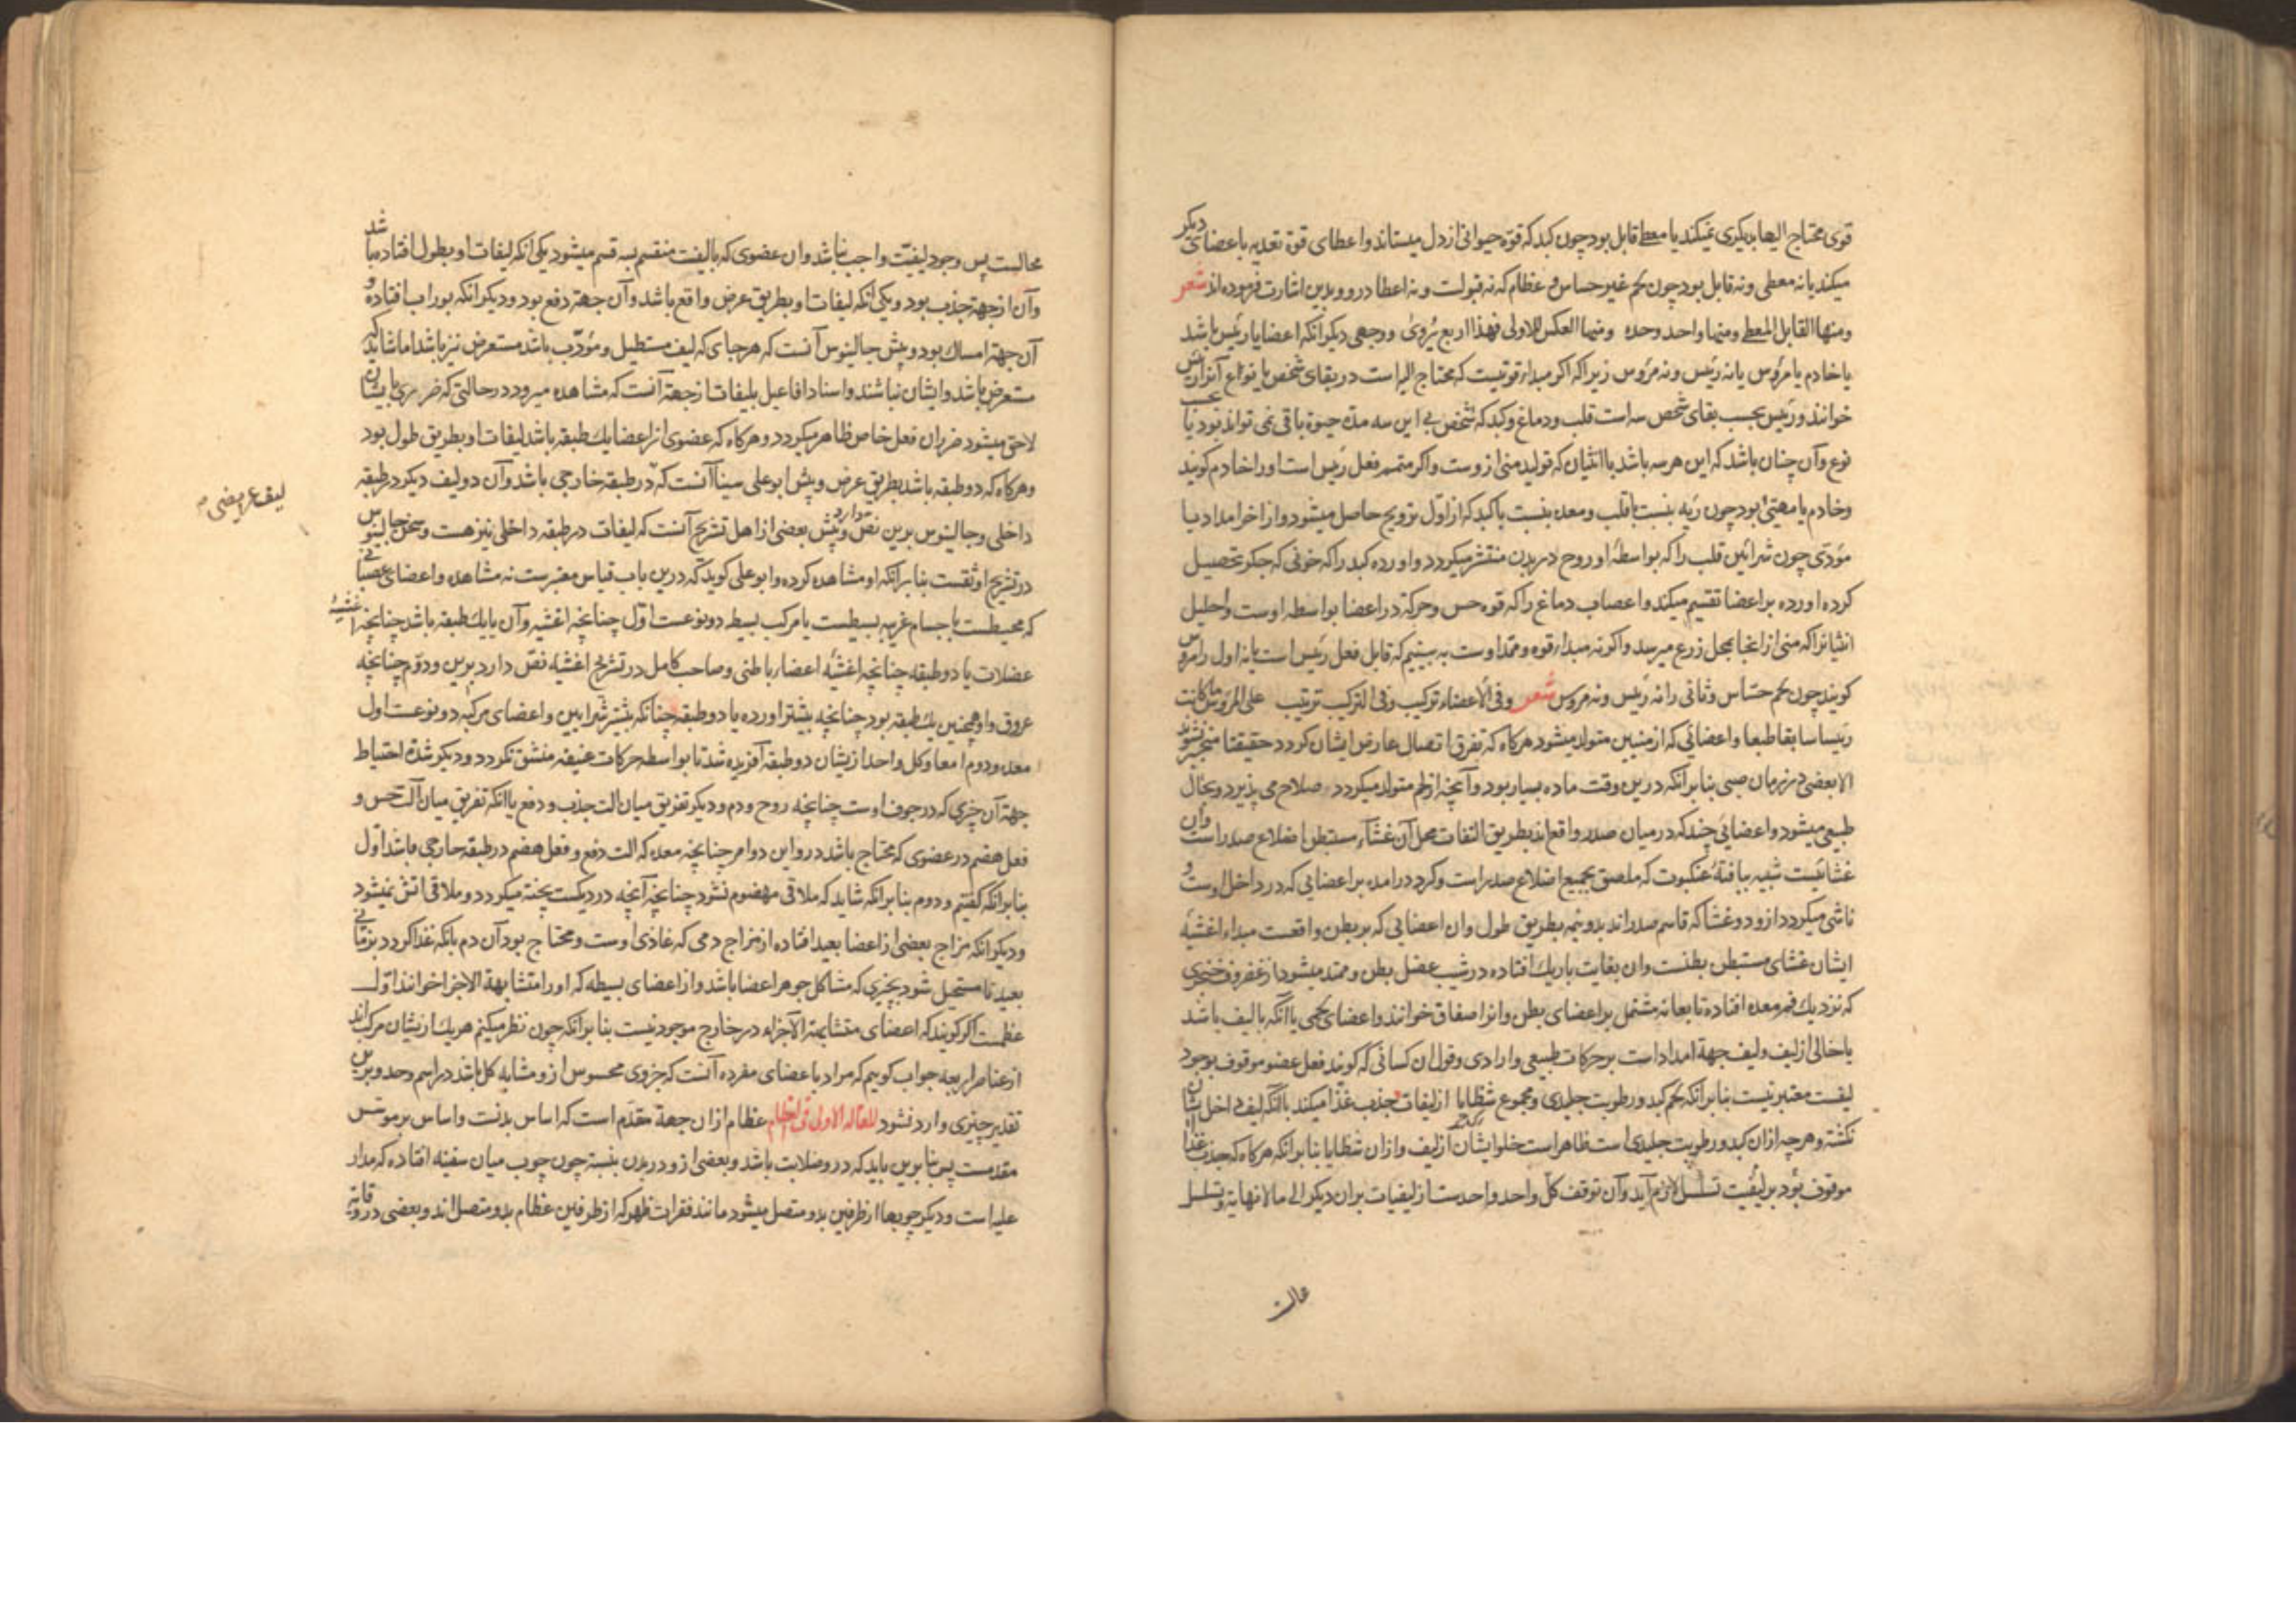 قوی محتاج الیها بدیکری نمیکند یا معطی قابل بود چون کبد که قوة حیوانی از دل میستاند و اعطای قوة تغدیه باعضای دیکر
میکند یا نه معطی و نه قابل بود چون لحم غیر حساس و عظام که نه قبولست و نه اعطا درو و بدین اشارت فرموده اند شعر
ومنها القابل المعطی ومنها واحد وحده ومنها العکس للاولی فهذا اربع یُرویٰ ووجهی دیکر انکه اعضا یا رئیس باشد
یا خادم یا مرؤس یا نه رئیس و نه مرؤس زیرا که اکر مبداء قوتیست که محتاج الیه است در بقای شخص یا نوع آنرا رئیس
خوانند و رئیس بحسب بقای شخص سه است قلب و دماغ و کبد که شخص بی این سه مدت حیوة باقی نمی تواند بود یا بحسب
نوع و آن چنان باشد که این هر سه باشد با انثیان که تولید منی ازوست و اکر متمم فعل رئیس است او را خادم کویند
و خادم یا مهیئ بود چون ریه بنسبت با قلب و معده بنسبت با کبد که از اول ترویح حاصل میشود و از اخر امداد یا
مؤدّی چون شرائین قلب را که بواسطهٔ او روح در بدن منتشر میکردد و اورده کبد را که خونی که جکر تحصیل
کرده اورده بر اعضا تقسیم میکند و اعصاب دماغ را که قوه حس و حرکة در اعضا بواسطه اوست و احلیل
انثیانرا که منی از انجا بمحل زرع میرسد و اکر نه مبداء قوه و ممد اوست به بینیم که قابل فعل رئیس است یا نه اول را مرؤس
کویند چون لحم حسّاس و ثانی را نه رئیس و نه مرؤس شعر وفی الاعضاء ترکیب وفی الترکیب ترتیب علی المرؤس ما کانت
رئیسا سابقا طبعا و اعضائی که از منیین متولد میشود هرکاه که تفرق اتصال عارض ایشان کردد حقیقتا منجبر نشوند
الا بعضی در زمان صبی بنابر انکه درین وقت ماده بسیار بود و آنچه از دم متولد میکردد صلاح می پذیرد و بحال
طبیعی میشود و اعضائی چند که در میان صدر واقع اند بطریق التفات محل آن غشاء مستبطن اضلاع صدر است و آن
غشائیست شبیه ببافتهٔ عنکبوت که ملصق بجمیع اضلاع صدر است و کرد درامده بر اعضایی که در داخل اوست و
ناشی میکردد ازو دو غشا که قاسم صدر اند بدو نیمه بطریق طول و ان اعضایی که بر بطن واقعست مبداء اغشیهٔ
ایشان غشای مستبطن بطنست و ان بغایت باریک افتاده در شیب عضل بطن و ممتد میشود از غضروف خنجری
که نزدیک فم معده افتاده تا بعانه مشتمل بر اعضای بطن و انرا صفاق خوانند و اعضای لحمی یا انکه با لیف باشد
یا خالی از لیف و لیف جهة امداد است بر حرکات طبیعی و ارادی و قول ان کسانی که کویند فعل عضو موقوف بوجود
لیفست معتبر نیست بنابر انکه لحم کبد و رطوبت جلیدی و مجموع شظایا از لیفات جذب غذا میکند با انکه لیف داخل نشان
نکشته و هرچه ازان کبد و رطوبت جلیدی است ظاهر است خلو ایشان از لیف و ازان شظایا بنابر انکه هرکاه که جذب غذا
موقوف بُود بر لیفیت تسلسل لازم آید و آن توقف کل واحد واحدست از لیفیات بران دیکر الی مالا نهایة و تسلسل
محالست
محالست پس وجود لیفیّت واجب نباشد و ان عضوی که بالیفست منقسم بسه قسم میشود یکی انکه لیفات او بطول افتاده باشد
و آن از جهة جذب بود و یکی انکه لیفات او بطریق عرض واقع باشد و آن جهة دفع بود و دیکر انکه بوراب افتاده و
آن جهة امساک بود و پیش جالینوس آنست که هرجای که لیف مستطیل و مؤرّب باشد مستعرض نیز باشد اما شاید که
مستعرض باشد و ایشان نباشند و اسناد افاعیل بلیفات از جهة آنست که مشاهده میرود در حالتی که ضرری بایشان
لاحق میشود ضرر ان فعل خاص ظاهر میکردد و هرکاه که عضوی از اعضا یک طبقه باشد لیفات او بطریق طول بود
و هرکاه که دو طبقه باشد بطریق عرض و پیش ابو علی سینا آنست که در طبقه خارجی باشد و آن دو لیف دیکر در طبقه
داخلی و جالینوس برین نص دارد و پیش بعضی از اهل تشریح آنست که لیفات در طبقه داخلی نیز هست و سخن جالینوس
در تشریح اوثقست بنابر انکه او مشاهده کرده و ابو علی کوید که درین باب قیاس معتبرست نه مشاهده و اعضای عصبانی
که محیطست باجسام غریبه بسیطست یا مرکب بسیطه دو نوعست اول چنانچه اغشیه و آن با یک طبقه باشد چنانچه اغشیهٔ
عضلات یا دو طبقه چنانچه اغشیه اعضاء باطنی و صاحب کامل در تشریح اغشیه نص دارد برین و دوم چنانچه
عروق و او همچنین یک طبقه بود چنانچه بیشتر اورده یا دو طبقه چنانکه بیشتر شرایین و اعضای مرکبه دو نوعست اول
معده و دوم امعا و کل واحد ازیشان دو طبقه آفریده شد تا بواسطه حرکات عنیفه منشق نکردد و دیکر شدة احتیاط
جهة آن چیزی که در جوف اوست چنانچه روح و دم و دیکر تفریق میان الت جذب و دفع یا انکه تفریق میان آلت حس و
فعل هضم در عضوی که محتاج باشد درو این دو امر چنانچه معده که الت دفع و فعل هضم در طبقه خارجی باشد اول
بنابر انکه کفتیم و دوم بنابر انکه شاید که ملاقی مهضوم نشود چنانچه آنچه در دیکست پخته میکردد و ملاقی اتش نمیشود
و دیکر انکه مزاج بعضی از اعضا بعید افتاده از مزاج دمی که غاذی اوست و محتاج بود آن دم بانکه غذا کردد بزمانی
بعید تا مستحیل شود بچیزی که مشاکل جوهر اعضا باشد و از اعضای بسیطه که او را متشابهة الاجزا خوانند اول
عظمست اکر کویند که اعضای متشابهة الاجزاء در خارج موجود نیست بنابر انکه چون نظر میکنیم هریک ازیشان مرکب اند
از عناصر اربعه جواب کویم که مراد باعضای مفرده آنست که جزوی محسوس ازو مشابه کل باشد در اسم وحد و برین
تقدیر چیزی وارد نشود المقاله الاولی فی العظام عظام ازان جهة مقدم است که اساس بدنست و اساس بر مؤسس
مقدمست پس بنابرین باید که درو صلابت باشد و بعضی ازو در بدن بنسبة چون چوب میان سفینه افتاده که مدار
علیه است و دیکر چوبها از طرفین بدو متصل میشود مانند فقرات ظهر که از طرفین عظام بدو متصل اند و بعضی در وقایه
لیف عریضی